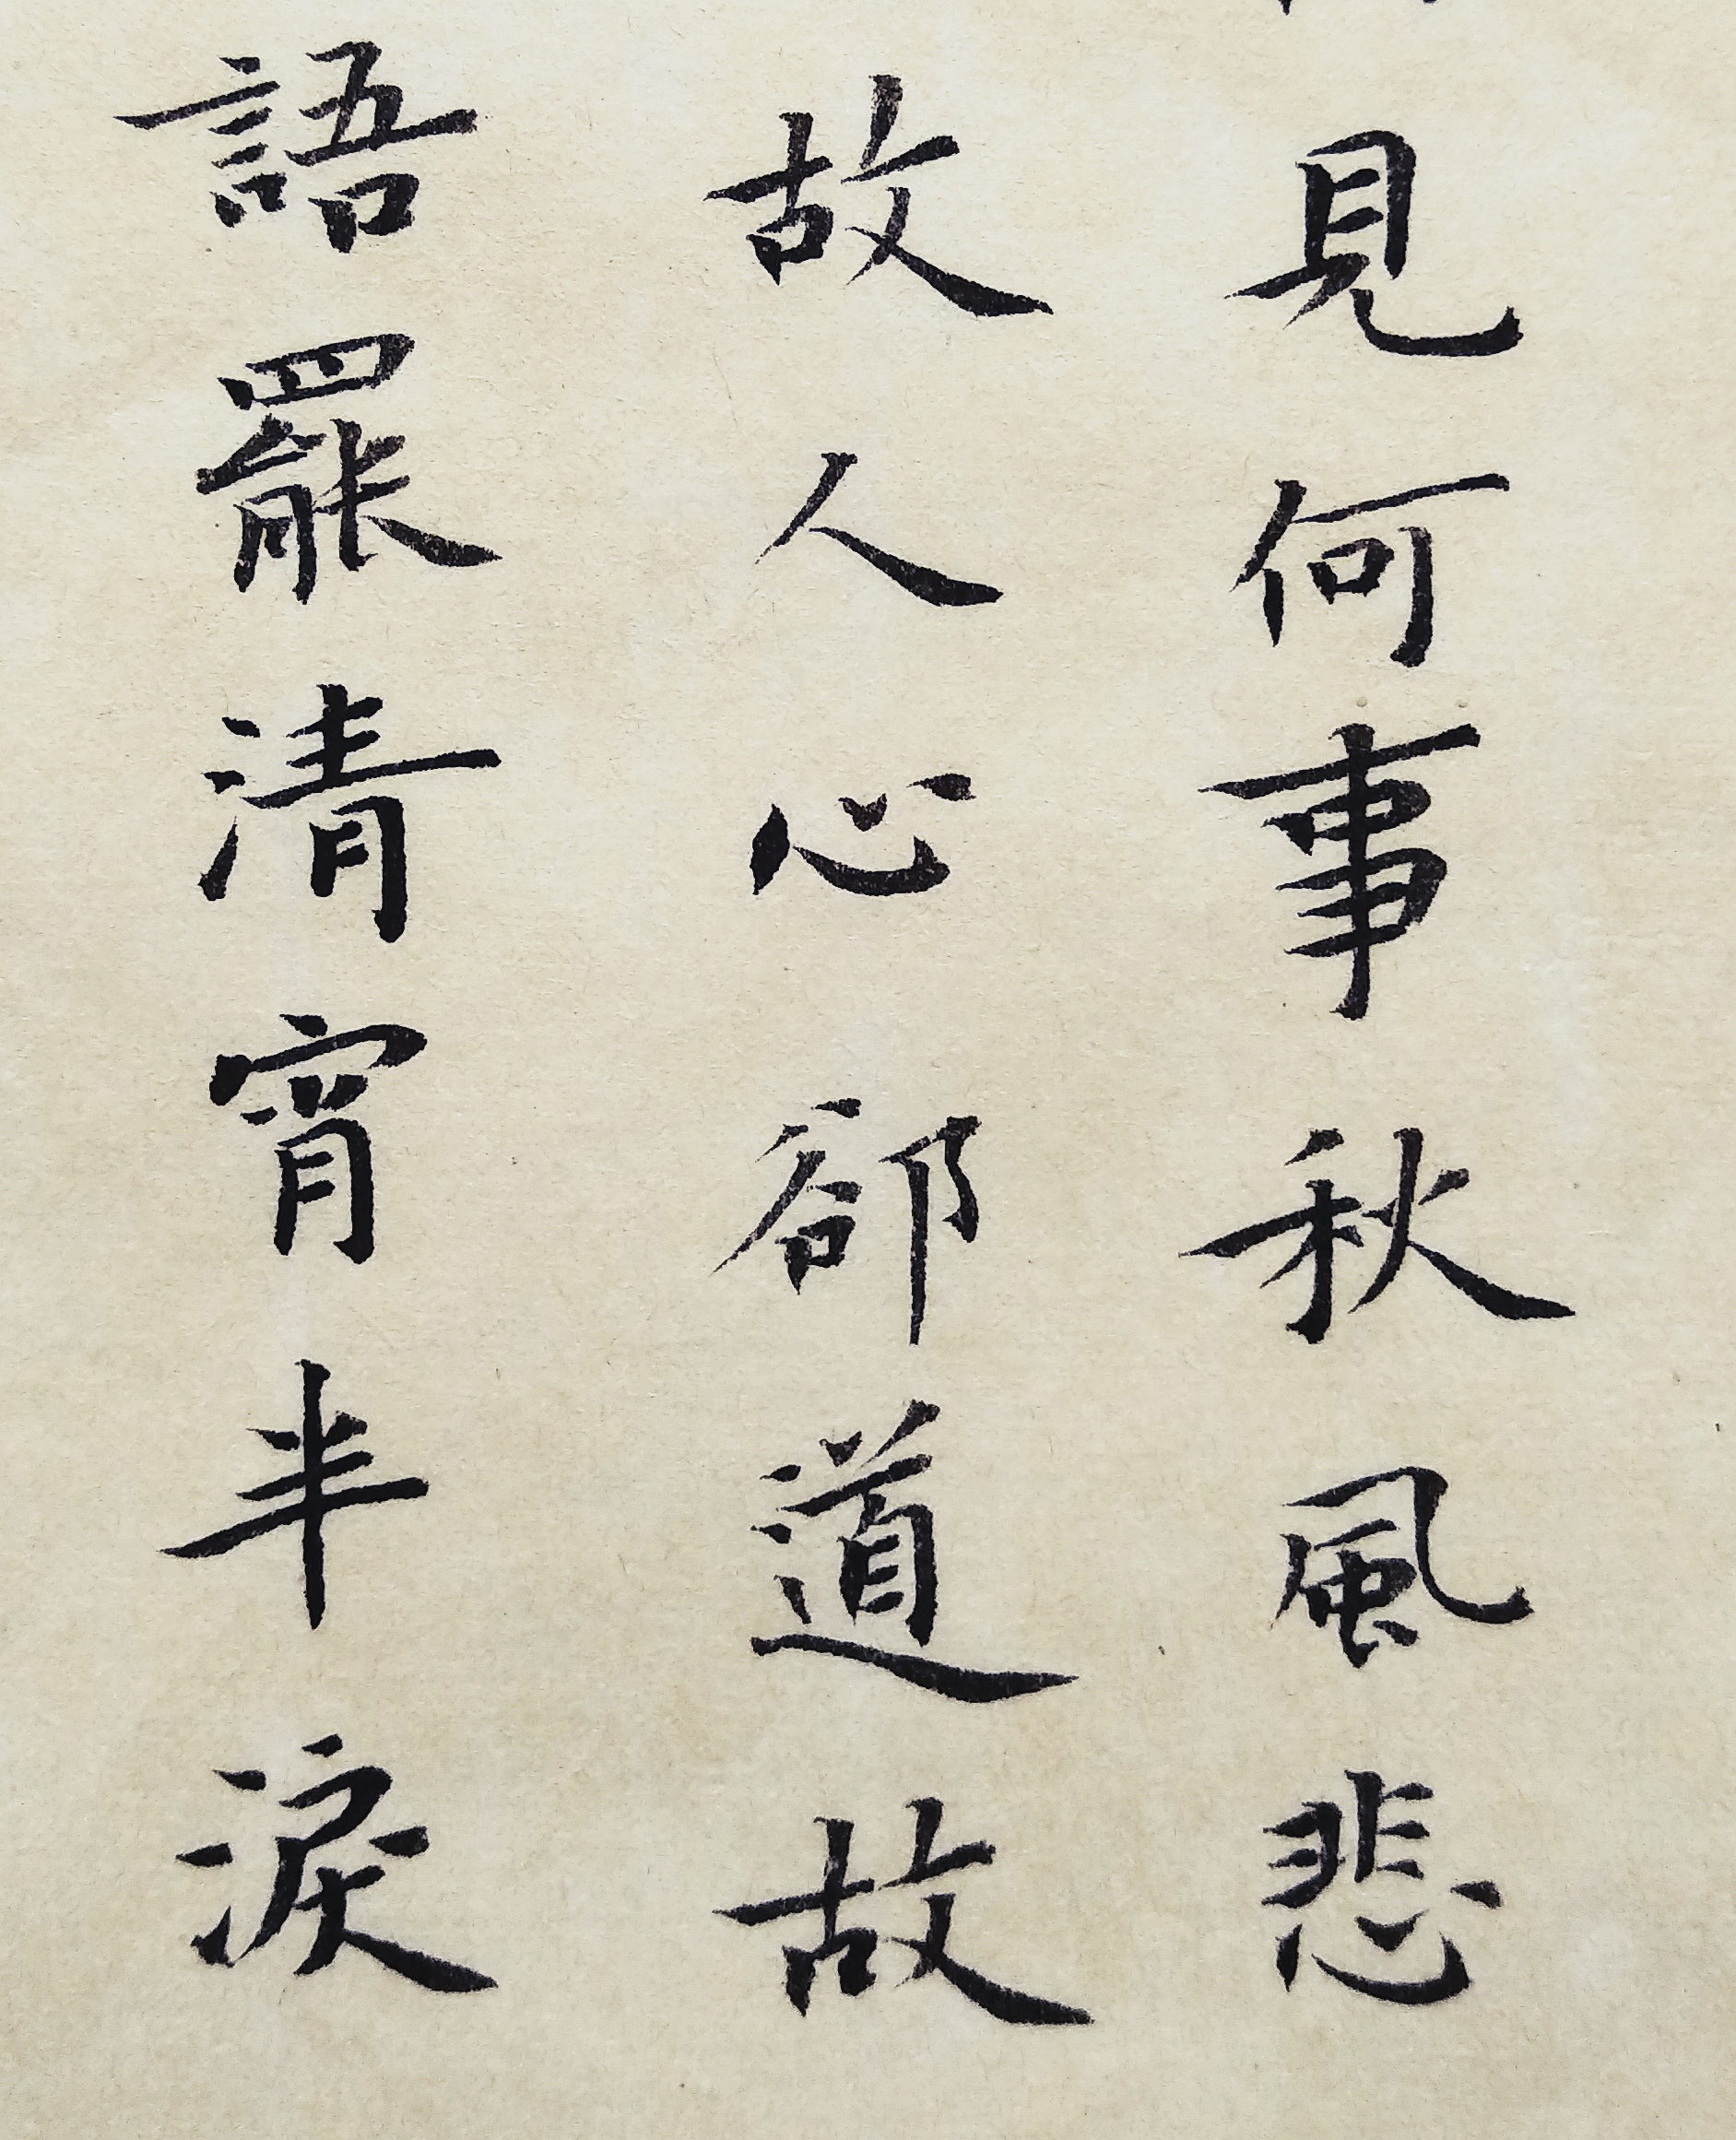 見何事秋風悲
故人心郤道故
語罷清宵半淚